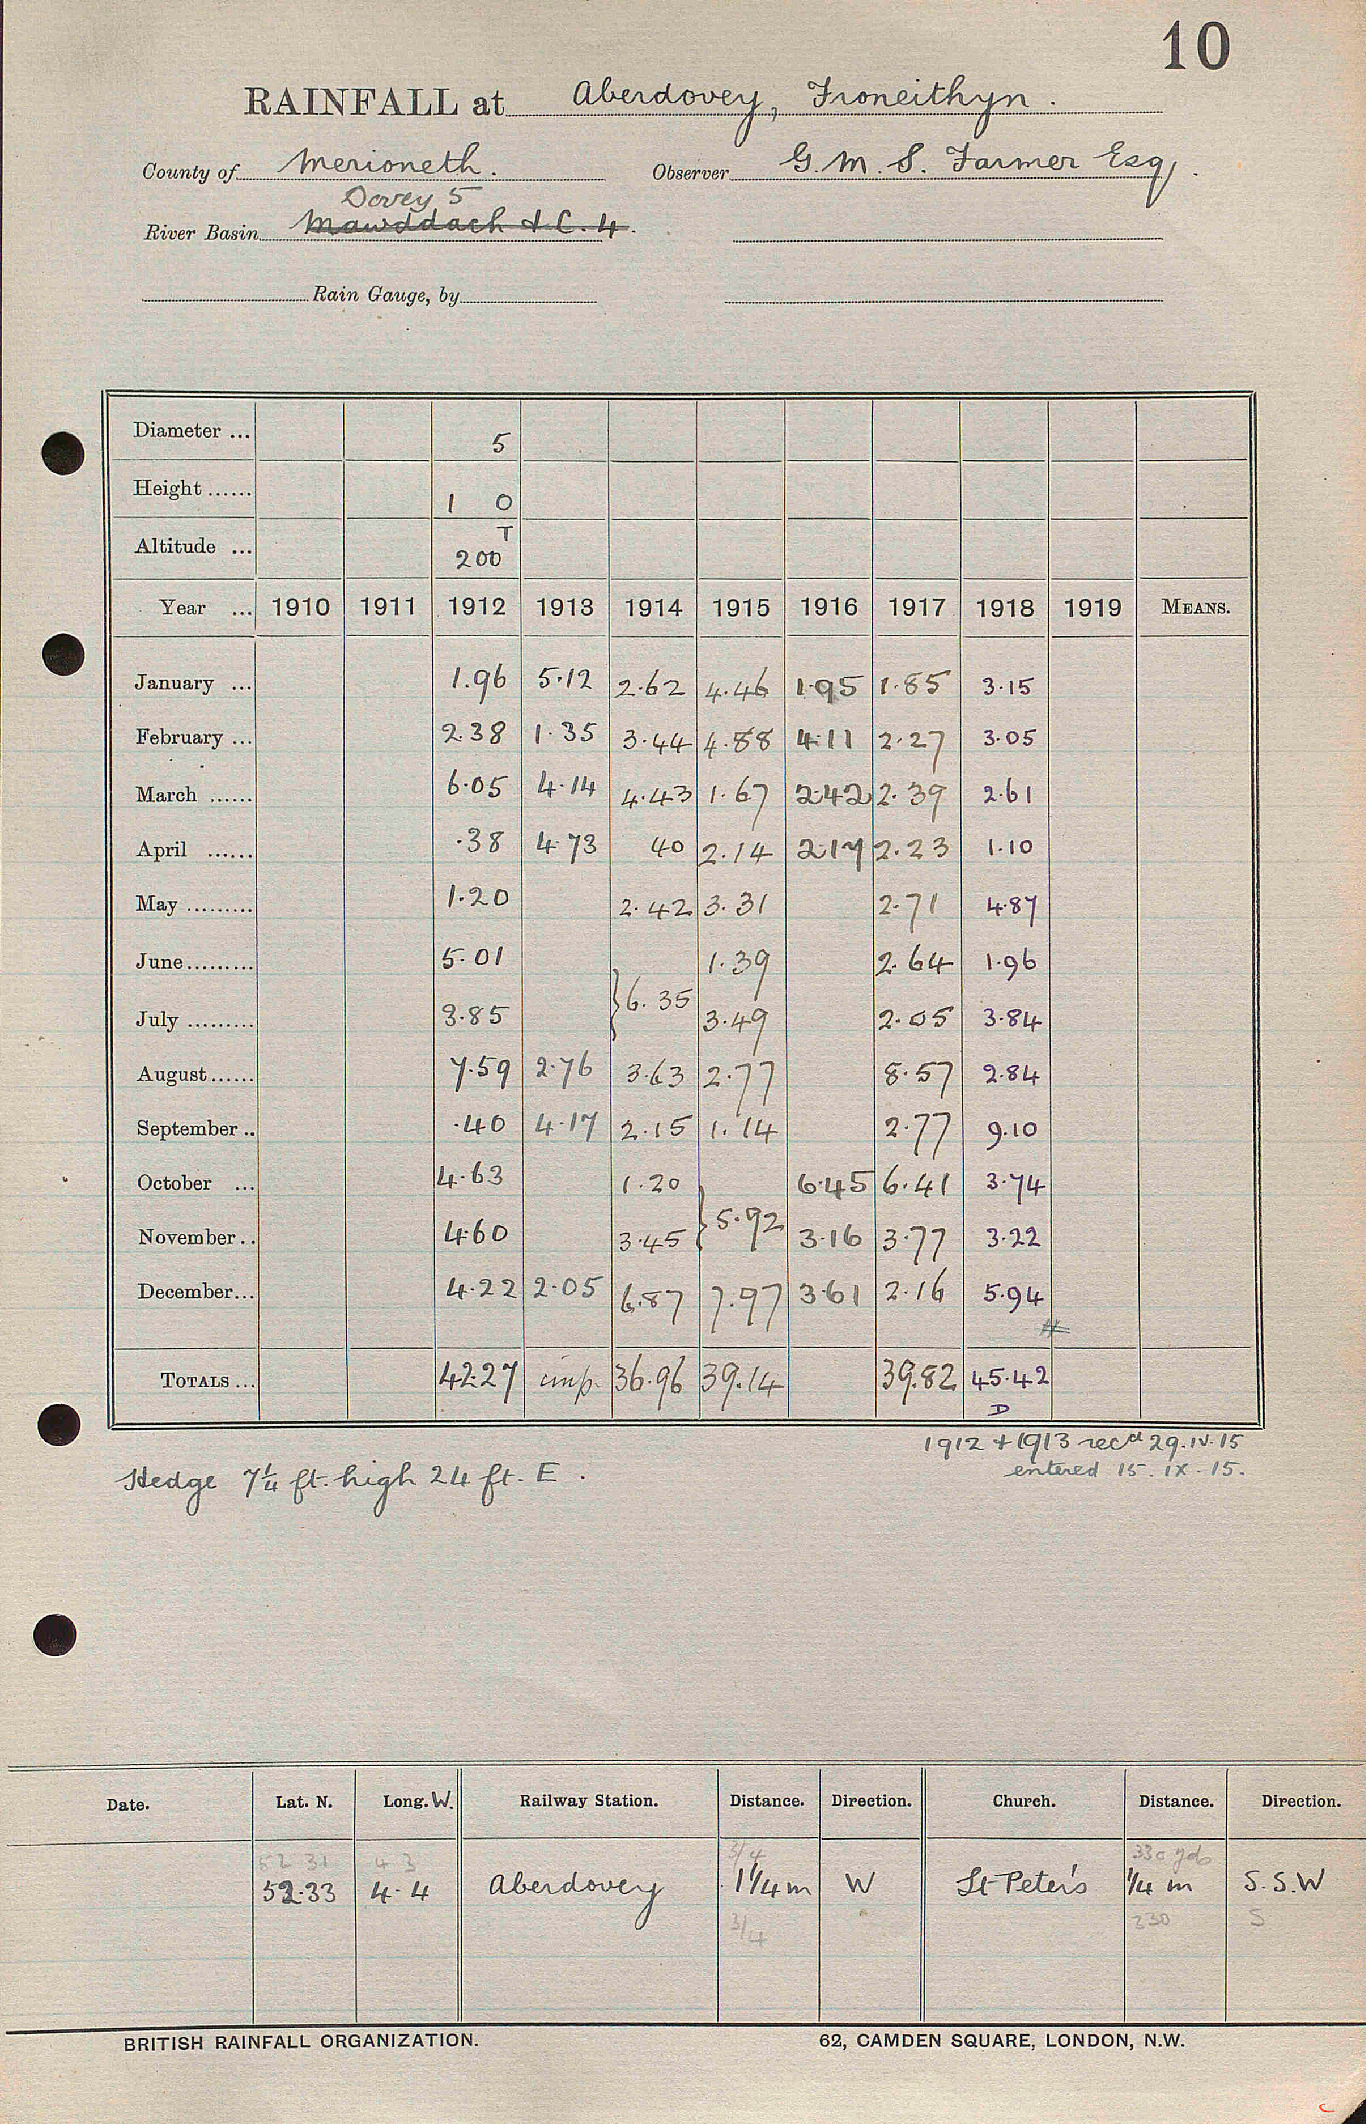 10
RAINFALL at Aberdovey, Froneithyn.
County of Merioneth. Observer G. M. S. Farmer Esq.
Dovey 5
River Basin Mawddach &C. 4.
Rain Gauge, by
Diameter ... 5
Height ...... 1 0
T
Altitude ... 200
Year ... 1910 1911 1912 1913 1914 1915 1916 1917 1918 1919 MEANS.
January ... 1.96 5.12 2.62 4.46 1.95 1.85 3.15
February ... 2.38 1.35 3.44 4.88 4.11 2.27 3.05
March ...... 6.05 4.14 4.43 1.67 2.42 2.39 2.61
April ...... .38 4.73 40 2.14 2.17 2.23 1.10
May ......... 1.20 2.42 3.31 2.71 4.87
June ......... 5.01 1.39 2.64 1.96
} 6.35
July ......... 3.85 3.49 2.05 3.84
August ...... 7.59 2.76 3.63 2.77 8.57 2.84
September .. .40 4.17 2.15 1.14 2.77 9.10
October ... 4.63 1.20 6.45 6.41 3.74
} 5.92
November .. 4.60 3.45 3.16 3.77 3.22
December ... 4.22 2.05 6.87 7.97 3.61 2.16 5.94
TOTALS ... 42.27 imp. 36.96 39.14 39.82 45.42
D
1912 + 1913 recd 29.IV.15
entered 15.IX.15.
Hedge 7¼ ft. high 24 ft. E.
Date. Lat. N. Long. W. Railway Station. Distance. Direction. Church. Distance. Direction.
52 31 4 3 3/4 330 yds
52.33 4.4 Aberdovey 1¼ m W St Peter's ¼ m S.S.W
3/4 330 S
BRITISH RAINFALL ORGANIZATION. 62, CAMDEN SQUARE, LONDON, N.W.